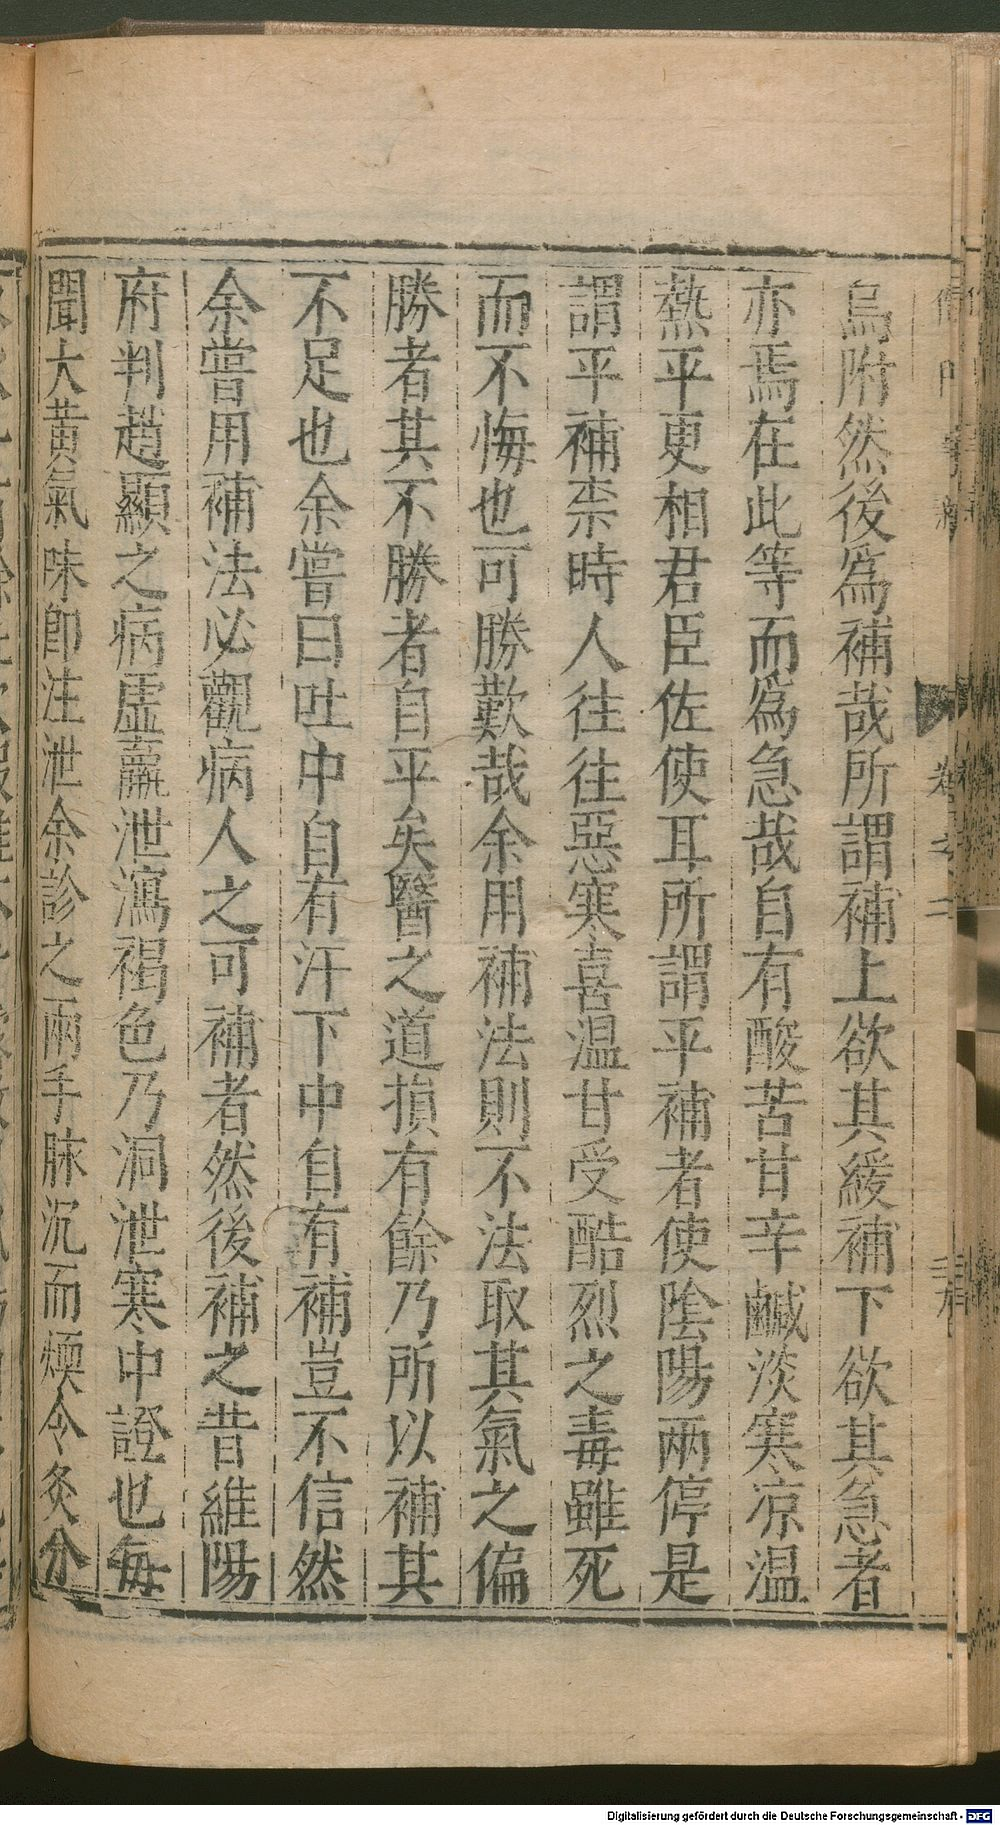 烏附然後爲補哉所謂補上欲其緩補下欲其急者
亦焉在此等而爲急哉自有酸苦甘辛鹹淡寒凉温
熱平更相君臣佐使耳所謂平補者使陰陽兩停是
謂平補柰時人往往惡寒喜温甘受酷烈之毒雖死
而不悔也可勝歎哉余用補法則不法取其氣之偏
勝者其不勝者自平矣醫之道損有餘乃所以補其
不足也余嘗曰吐中自有汗下中自有補豈不信然
余嘗用補法必觀病人之可補者然後補之昔維陽
府判趙顯之病虛羸泄瀉褐色乃洞泄寒中證也每
聞大黄氣味即注泄余診之兩手脉沉而煗令灸分
卷之二
Digitalisierung gefördert durch die Deutsche Forschungsgemeinschaft - DFG